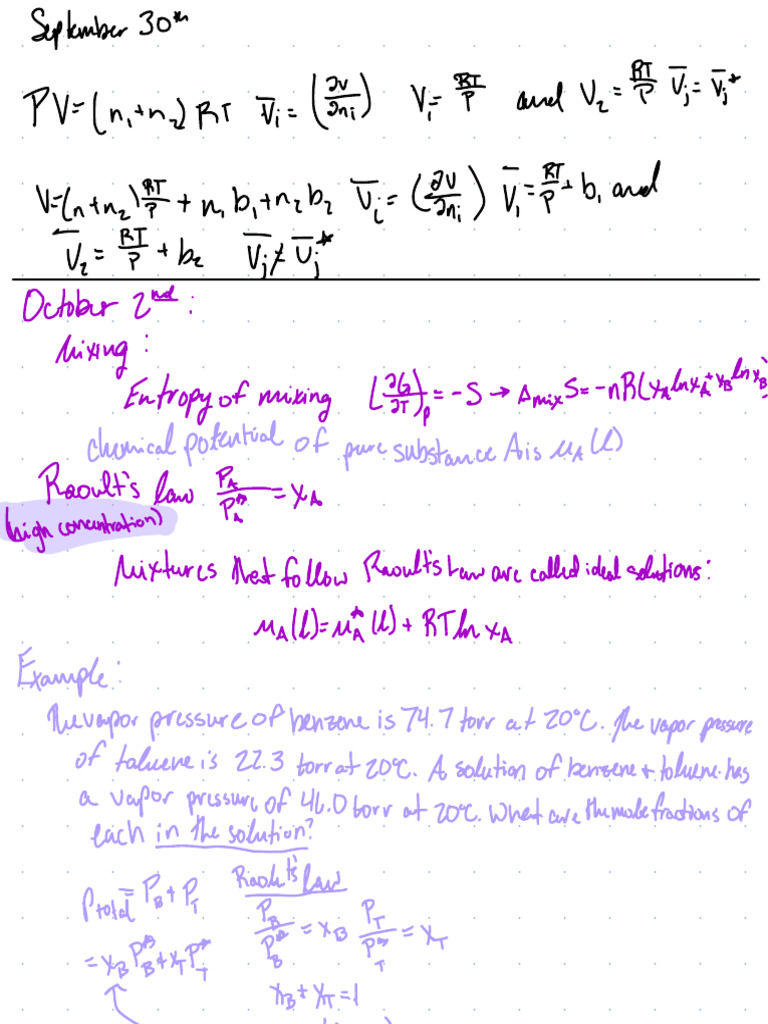 September 30th
PV=(n₁+n₂) RT V̅i = (∂V/∂ni) V₁ = RT/P and V₂ = RT/P V̅j = V̅j*
V=(n+n₂) RT/P + n₁b₁+n₂b₂ V̅i = (∂V/∂ni) V̅₁ = RT/P + b₁ and
V̅₂ = RT/P + b₂ V̅j ≠ V̅j*
October 2nd:
Mixing:
Entropy of mixing (∂G/∂T)p = -S → ΔmixS = -nR(xA ln xA + xB ln xB)
chemical potential of pure substance A is μA(l)
Raoult's law PA/PA* = xA
(high concentration)
Mixtures that follow Raoult's Law are called ideal solutions:
μA(l)=μA*(l)+ RT ln xA
Example:
The vapor pressure of benzene is 74.7 torr at 20°C. The vapor pressure
of toluene is 22.3 torr at 20°C. A solution of benzene + toluene has
a vapor pressure of 46.0 torr at 20°C. What are the mole fractions of
each in the solution?
Ptotal = PB + PT
= xB PB* + xT PT*
Raoult's Law
PB/PB* = xB PT/PT* = xT
xB + xT = 1